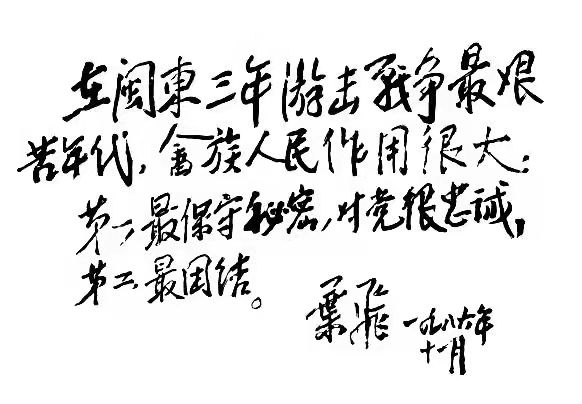 在闽東三年游击戰争最艰
苦年代，畲族人民作用很大：
第一最保守秘密，对党很忠诚，
第二最团结。
葉飛 一九八六年
十一月